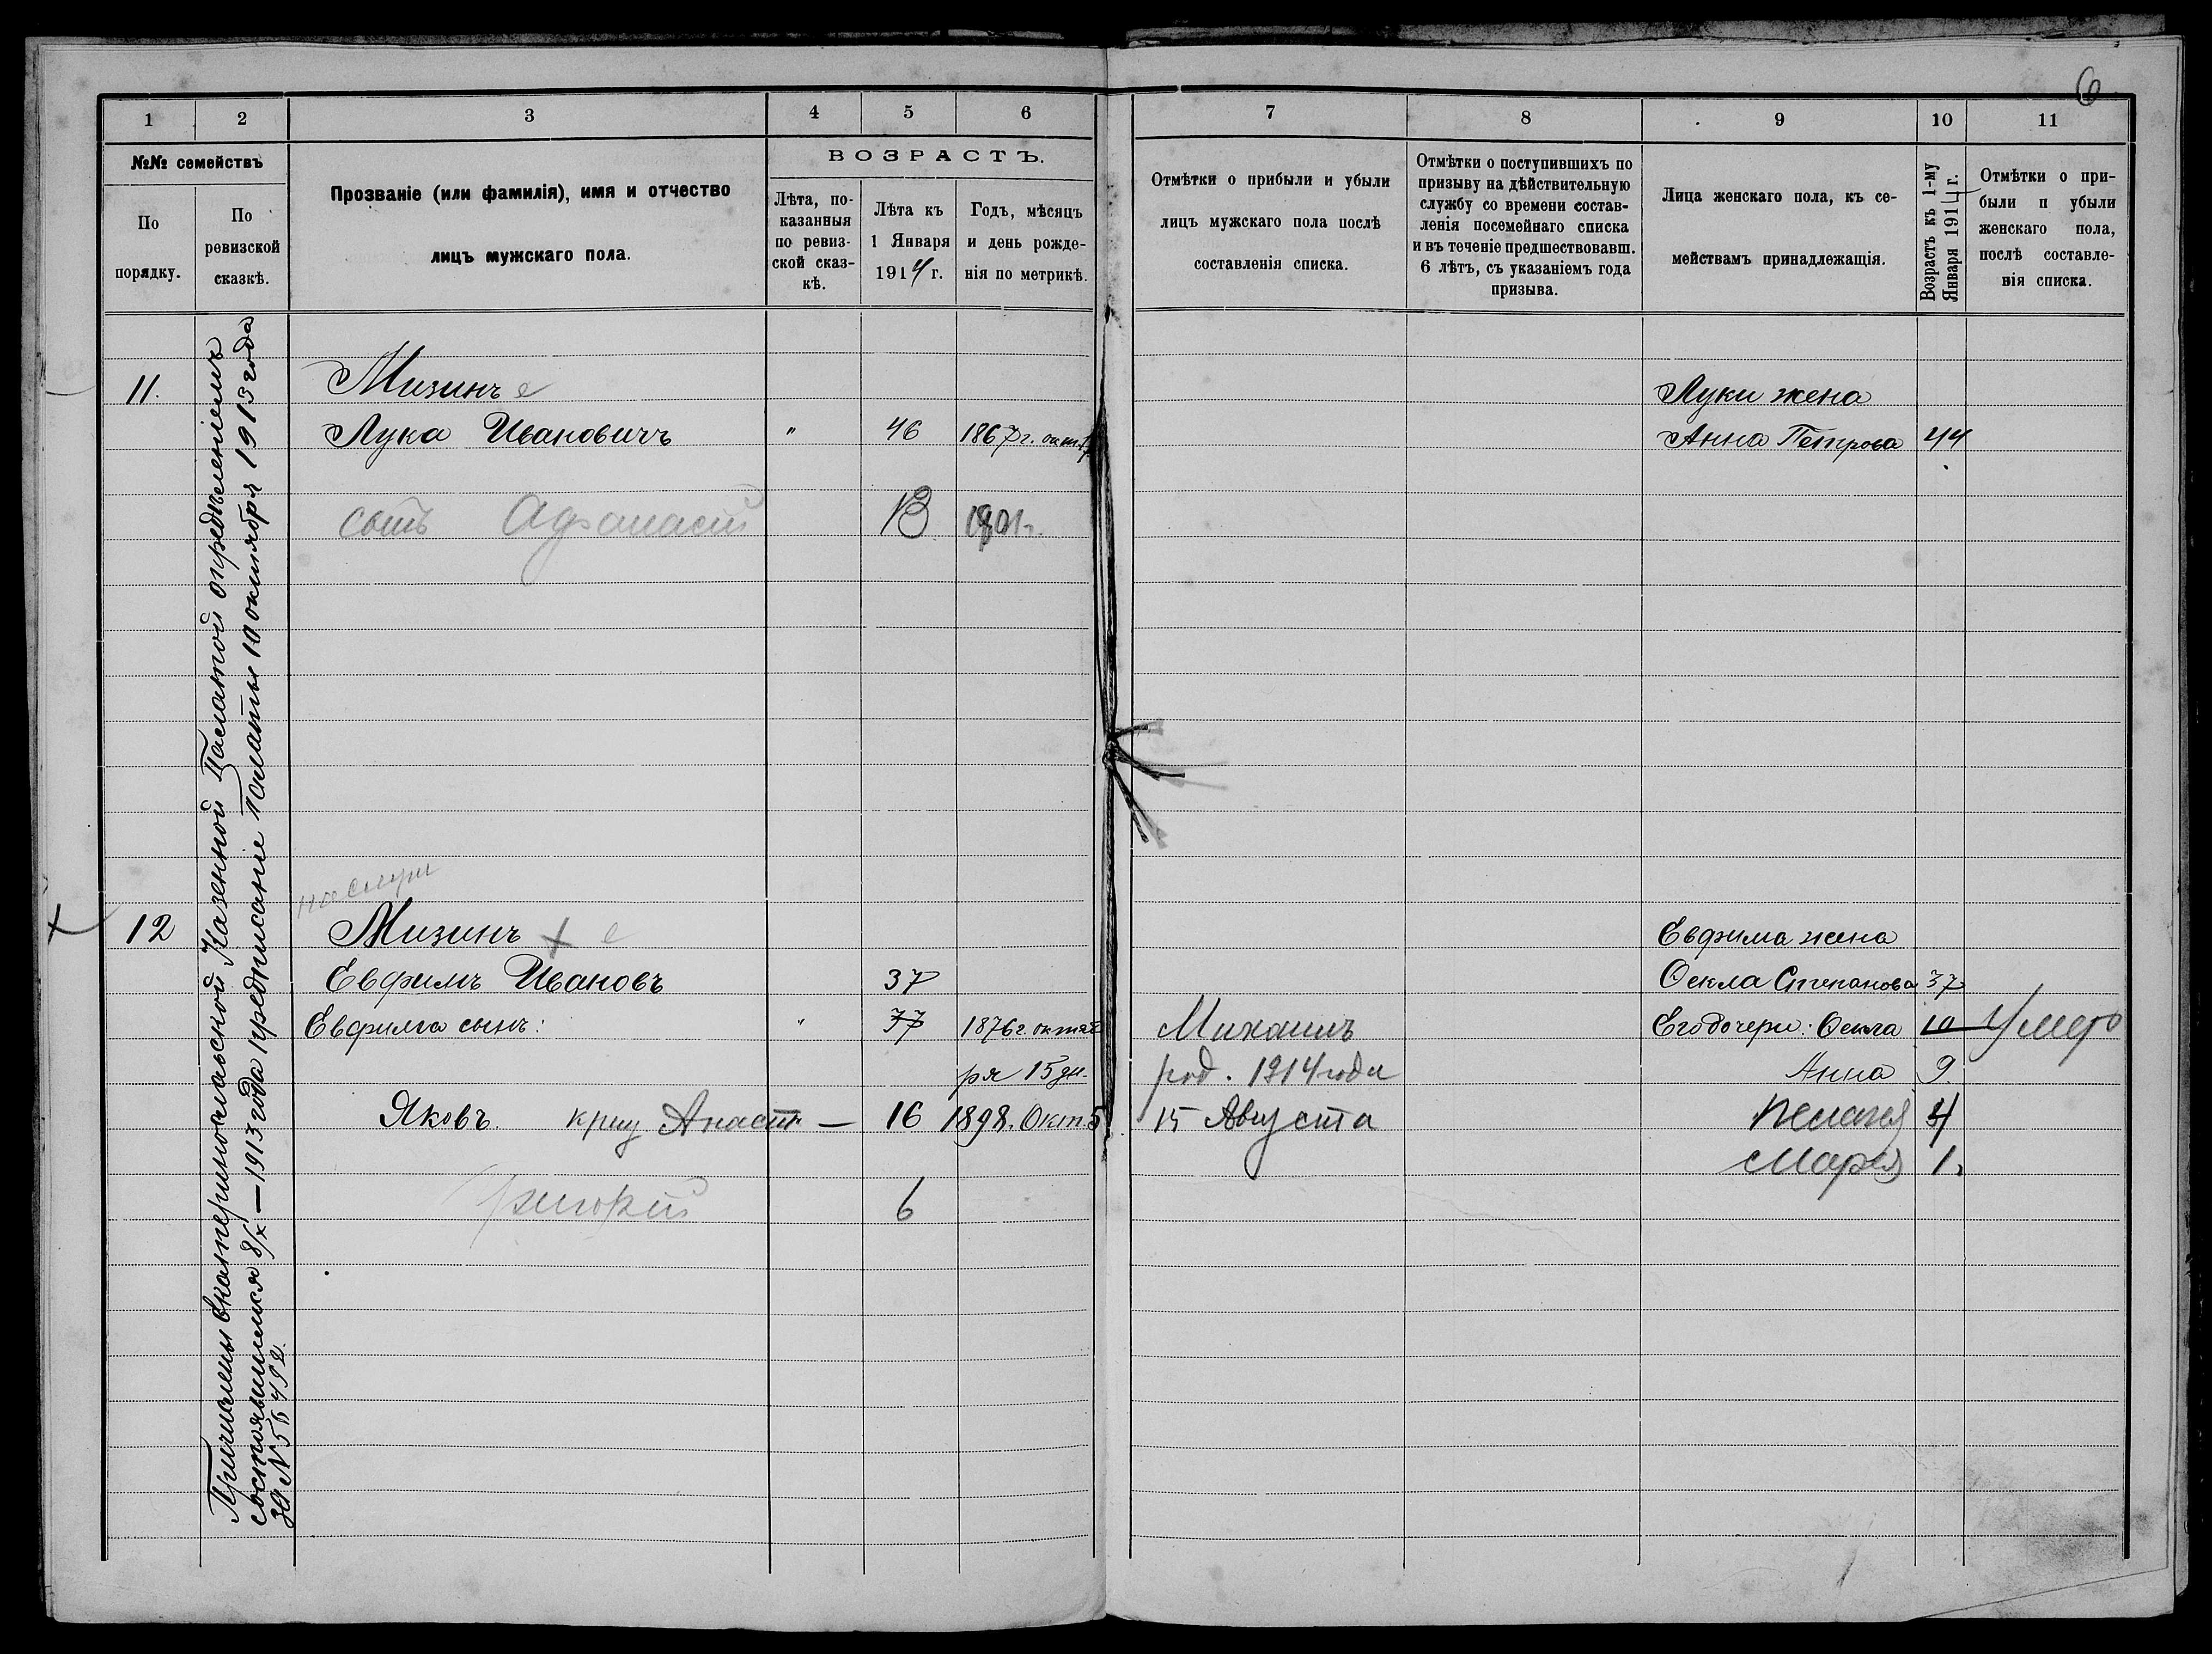 6
1 2 3 4 5 6
№№ семействъ
По порядку.
По ревизской сказкѣ.
Прозваніе (или фамилія), имя и отчество
лицъ мужскаго пола.
ВОЗРАСТЪ.
Лѣта, по-
казанныя
по ревиз-
ской сказ-
кѣ.
Лѣта къ
1 Января
1914 г.
Годъ, мѣсяцъ
и день рожде-
нія по метрикѣ.
7 8 9 10 11
Отмѣтки о прибыли и убыли
лицъ мужскаго пола послѣ
составленія списка.
Отмѣтки о поступившихъ по
призыву на дѣйствительную
службу со времени состав-
ленія посемейнаго списка
и въ теченіе предшествовавш.
6 лѣтъ, съ указаніемъ года
призыва.
Лица женскаго пола, къ се-
мействамъ принадлежащія.
Возрастъ къ 1-му
Января 1914 г.
Отмѣтки о при-
были и убыли
женскаго пола,
послѣ составле-
нія списка.
Причислены Екатеринославской Казенной Палатой опредѣленіемъ
состоявшимся 8/X — 1913 года предписаніе Палаты 10 октября 1913 года
за №
11. Мизинъ е
Луки жена
Лука Ивановичъ " 46 1867 г. окт.
Анна Петрова 44
сынъ Афанасій 13 1901 г.
12 Мизинъ + е
Евфима жена
Евфимъ Ивановъ 37
Ѳекла Степанова 37
Евфима сынъ: " 37 1876 г. октяб
Михаилъ
Его дочери: Ѳекла 10 Умер
ря 15 дн.
род. 1914 года
Анна 9.
Яковъ. — 16 1898. Окт. 5
15 Августа
Пелагея 4
Марея 1
Григорій 6